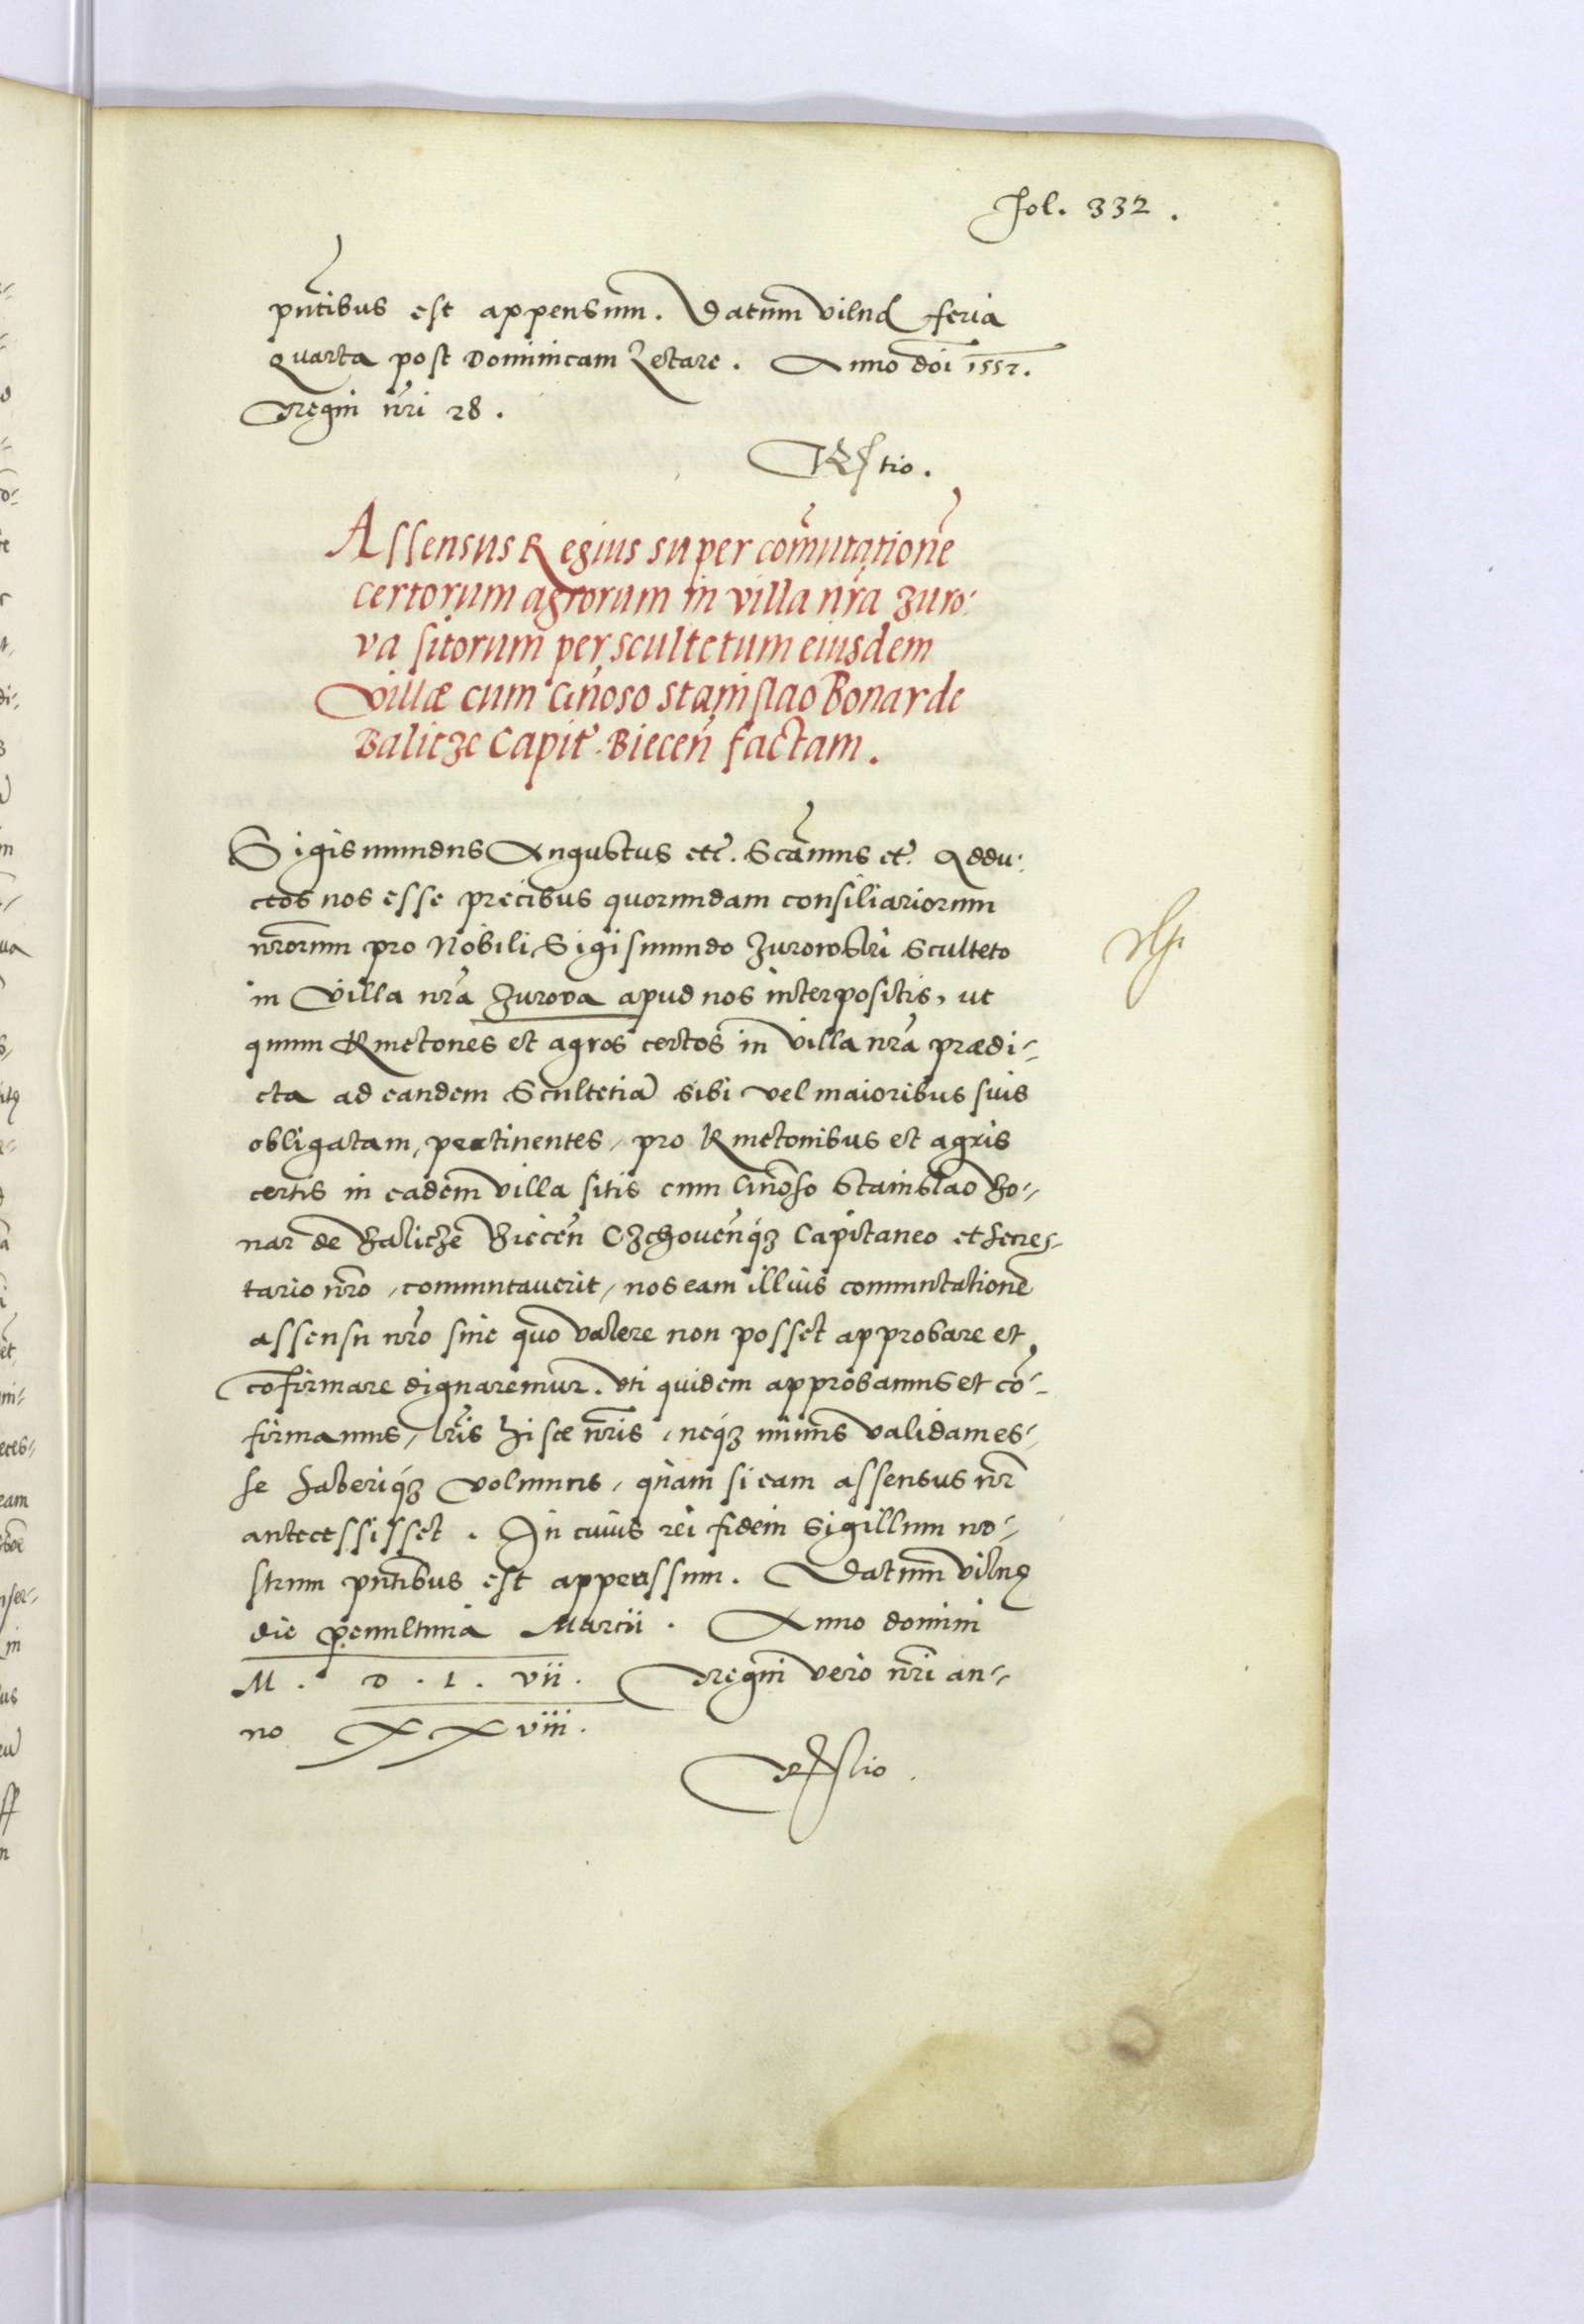 Fol. 332.
pñtibus est appensum. Datum Vilnę feria
quarta post Dominicam Letare. Anno doi 1557.
Regni nri 28.
Assensus Regius super comutatione
certorum agrorum in villa nra Zuro:
va sitorum per scultetum eiusdem
Villæ cum Gnoso Stanislao Bonar de
Balicze Capit. Biecen factam.
Sigismundus Augustus etc. Scamus etc. Addu:
ctos nos esse precibus quorundam consiliariorum
nrorum pro Nobili Sigismundo Zurowski Sculteto
in Villa nra Zurova apud nos interpositis, ut
quum Kmetones et agros certos in Villa nra prædi-
cta ad eandem Scultetia sibi vel maioribus suis
obligatam, pertinentes, pro Kmetonibus et agris
certis in eadem villa sitis cum Gnoso Stanislao Bo-
nar de Balicze Biecen Czchovenqz Capitaneo et
tario nro, commutaverit, nos eam illius commutatione
assensu nro sine quo valere non posset approbare et
cofirmare dignaremur. Uti quidem approbamus et co-
firmamus, lris hisce nris, neqz minus validam es-
se haberiqz volumus, quam si eam assensus nr
antecessisset. In cuius rei fidem Sigillum no-
strum pntibus est appenssum. Datum Vilnę
die penultima Marcii. Anno domini
M. D. L. vii. Regni vero nri an-
no XXviii.